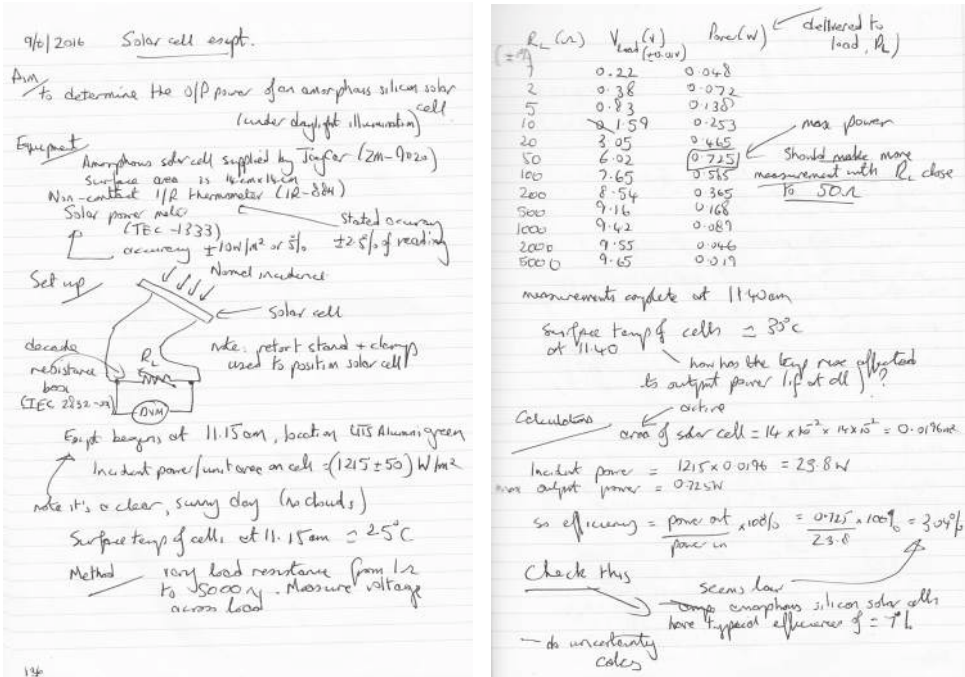 9/6/2016 Solar cell expt.
Aim
to determine the O/P power of an amorphous silicon solar
cell
(under daylight illumination)
Equipment
Amorphous solar cell supplied by Jaycar (ZM-9020)
surface area is 14cm x 14cm
Non-contact I/R thermometer (IR-884)
Solar power meter
(TEC-1333)
accuracy ±10W/m² or 5%
Stated accuracy
±2.5% of reading
Set up
Normal incidence
solar cell
decade
resistance
box
R_L
DVM
note: retort stand + clamps
used to position solar cell
Expt begins at 11.15am, location UTS Alumni green
Incident power/unit area on cell = (1215 ± 50) W/m²
note it's a clear, sunny day (no clouds)
Surface temp of cells at 11.15am ≃ 25°C
Method
vary load resistance from 1Ω
to 5000Ω. Measure voltage
across load
136
R_L (Ω) V_load (V) Power (W) delivered to
(±0.01V) load, R_L)
1 0.22 0.048
2 0.38 0.072
5 0.83 0.138
10 1.59 0.253
20 3.05 0.465
50 6.02 0.725
100 7.65 0.585
200 8.54 0.365
500 9.16 0.168
1000 9.42 0.089
2000 9.55 0.046
5000 9.65 0.019
max power
Should make more
measurement with R_L close
to 50Ω
measurements complete at 11.40am
Surface temp of cells ≃ 35°C
at 11.40
how has the temp rise affected
the output power (if at all)?
Calculations
active
area of solar cell = 14 x 10⁻² x 14 x 10⁻² = 0.0196m²
Incident power = 1215 x 0.0196 = 23.8W
max output power = 0.725W
so efficiency = power out / power in x 100% = 0.725 / 23.8 x 100% = 3.04%
Check this
seems low
amorphous silicon solar cells
have typical efficiences of ≃ 7%
- do uncertainty
calcs